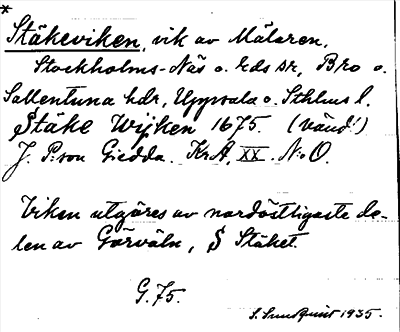 *
Stäkeviken, vik av Mälaren,
Stockholms-Näs o. Eds sn, Bro o.
Sollentuna hdr, Uppsala o. Sthlms l.
Stäke Wijken 1675. (vänd!)
J. P:son Giedda. KrA, XX. N:o O.
Viken utgöres av nordöstligaste de-
len av Görväln, S Stäket.
G. 75.
S. Sundquist 1935.